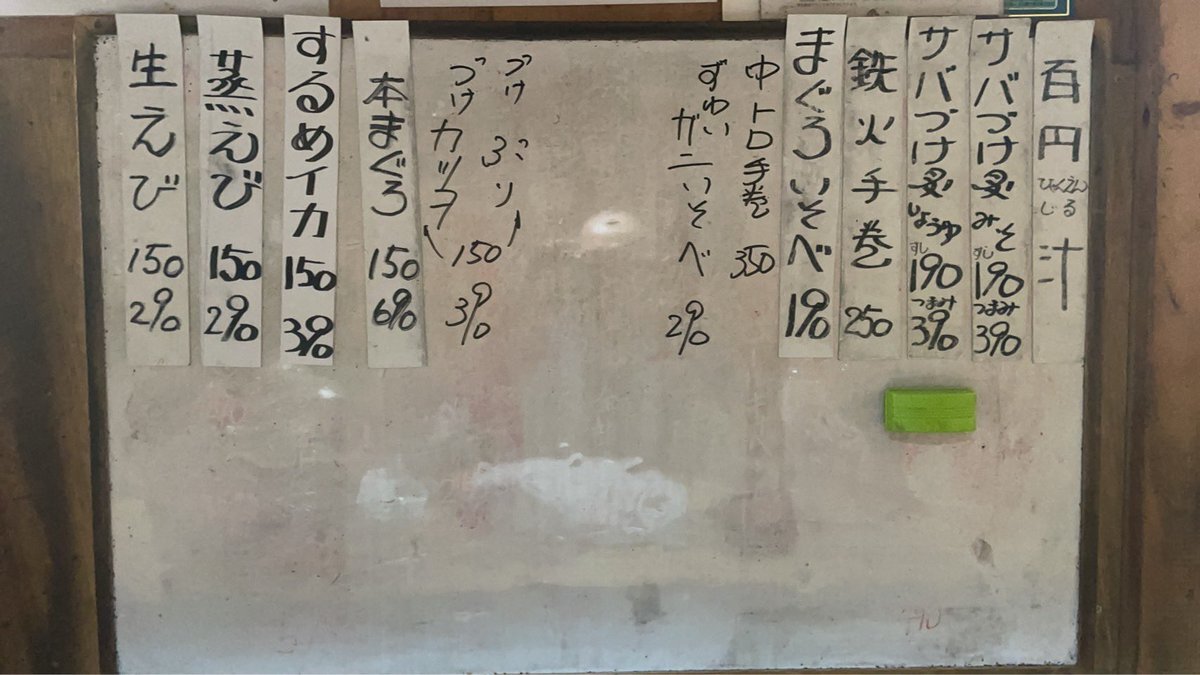 百円汁
ひゃくえんじる
サバづけ炙みそ
すし
190
つまみ
390
サバづけ炙しょうゆ
すし
190
つまみ
390
鉄火手巻 250
まぐろいそべ 190
中トロ手巻 350
ずわいガニいそべ 290
づけぶり
づけカツヲ
150
390
本まぐろ 150 690
するめイカ 150 390
蒸えび 150 290
生えび 150 290